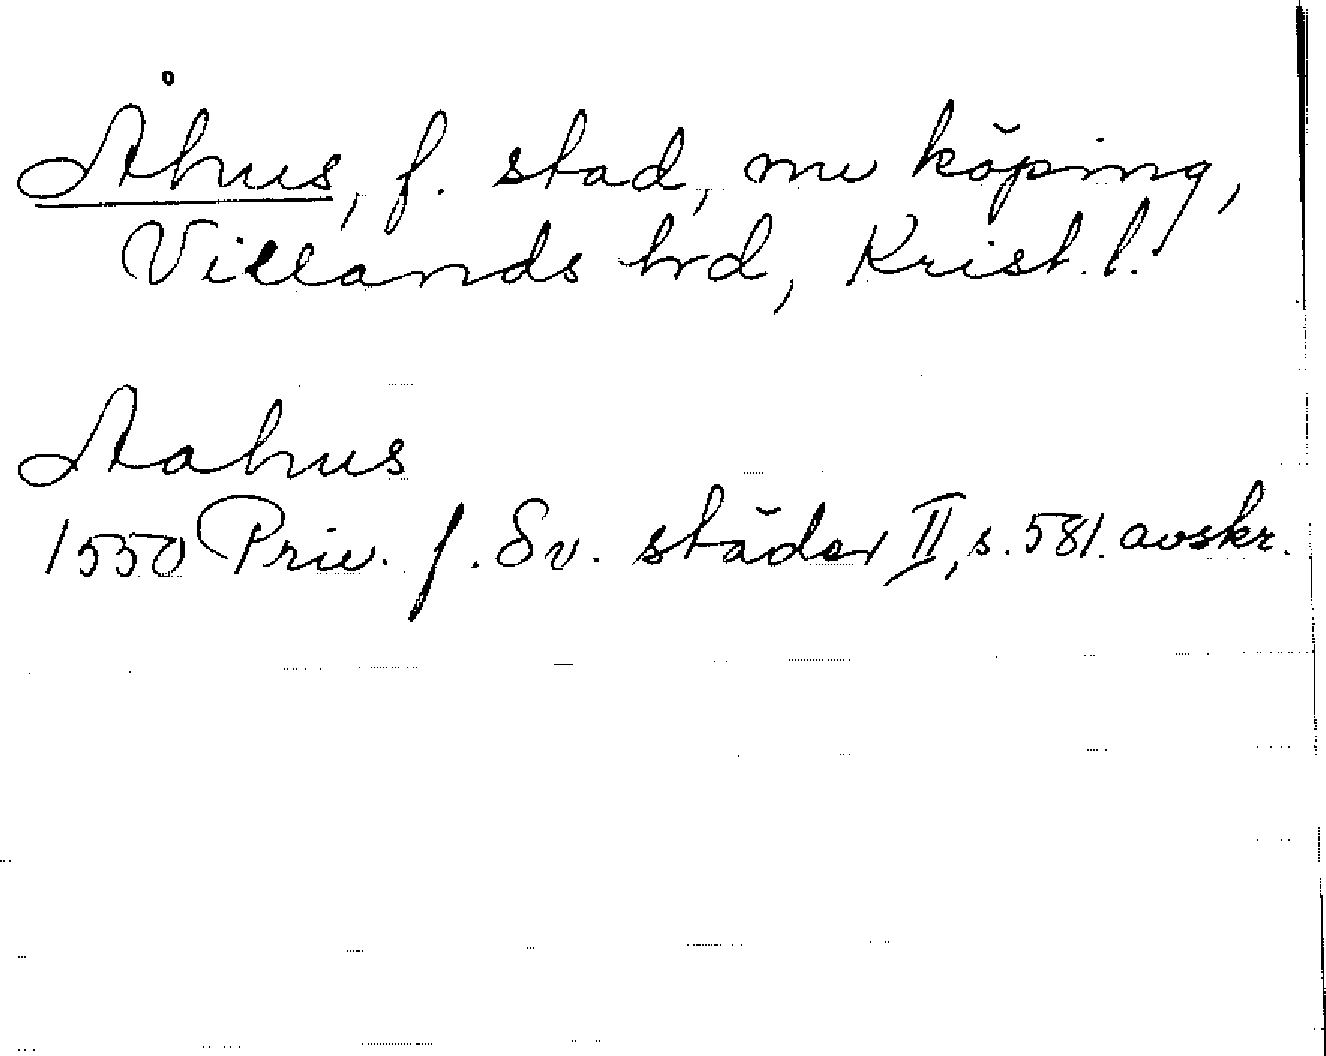 Åhus, f. stad, nu köping,
Villands hrd, Krist. l.
Aahus
1550 Priv. f. Sv. städer II, s. 581. avskr.